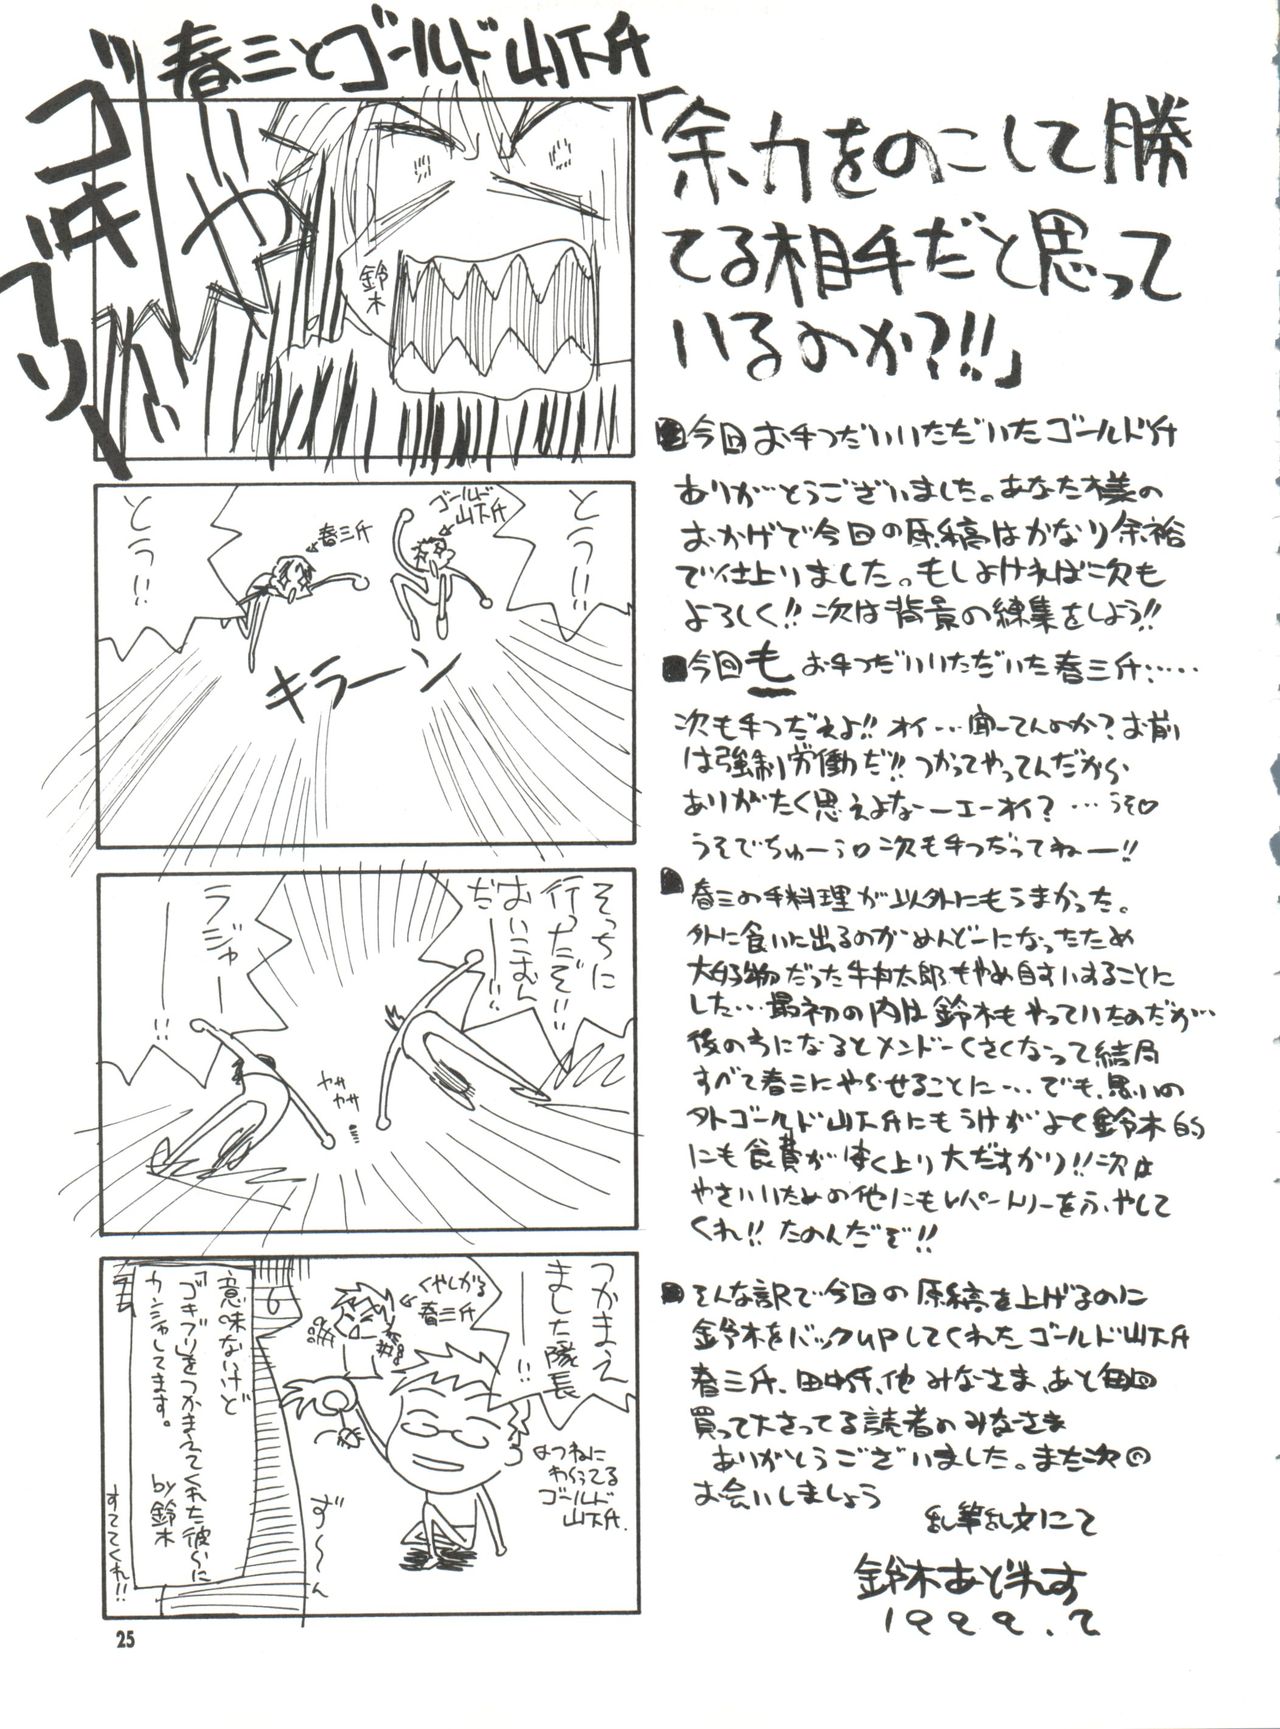 春三とゴールド山下氏
「余力をのこして勝
てる相手だと思って
いるのか?!!」
ゴキブリ
じゃーー
鈴木
ゴールド
山下氏
春三氏
とうっ!!
とうっ!!
キラーン
そっちに
行ったぞ!!
おいこむん
だ
ーー!!
ラジャー
ーー!!
ササ
ササ
つかまえ
ました隊長
ーー!!
くやしがる
春三氏
よつねに
わらってる
ゴールド
山下氏.
ず〜〜ん
意味ないけど
「ゴキブリ」をつかまえてくれた彼らに
カンシャしてます。
by鈴木
すててくれ!!
今回お手つだいいただいたゴールド氏
ありがとうございました。あなた様の
おかげで今回の原稿はかなり余裕
で仕上りました。もしよければ次も
よろしく!!次は背景の練集をしよう!!
今回もお手つだいいただいた春三氏……
次も手つだえよ!!オイ…聞ーてんのか?お前
は強制労働だ!!つかってやってんだから
ありがたく思えよなーエーオイ?…うそ♡
うそでちゅーぅ♡次も手つだってねー!!
春三の手料理が以外にもうまかった。
外に食いに出るのがめんどーになったため
大好物だった牛丼太郎もやめ自すいすることに
した…最初の内は鈴木もやっていたのだが…
後の方になるとメンドーくさくなって結局
すべて春三にやらせることに…でも、思いの
外ゴールド山下氏にもうけがよく鈴木的
にも食費がうく上り大だすかり!!次は
やさいいための他にもレパートリーをふやして
くれ!!たのんだぞ!!
そんな訳で今回の原稿を上げるのに
鈴木をバックupしてくれたゴールド山下氏
春三氏、田中氏、他みなさま、あと毎回
買って下さってる読者のみなさま
ありがとうございました。また次の
お会いしましょう
乱筆乱文にて
鈴木あどれす
1999.2
25